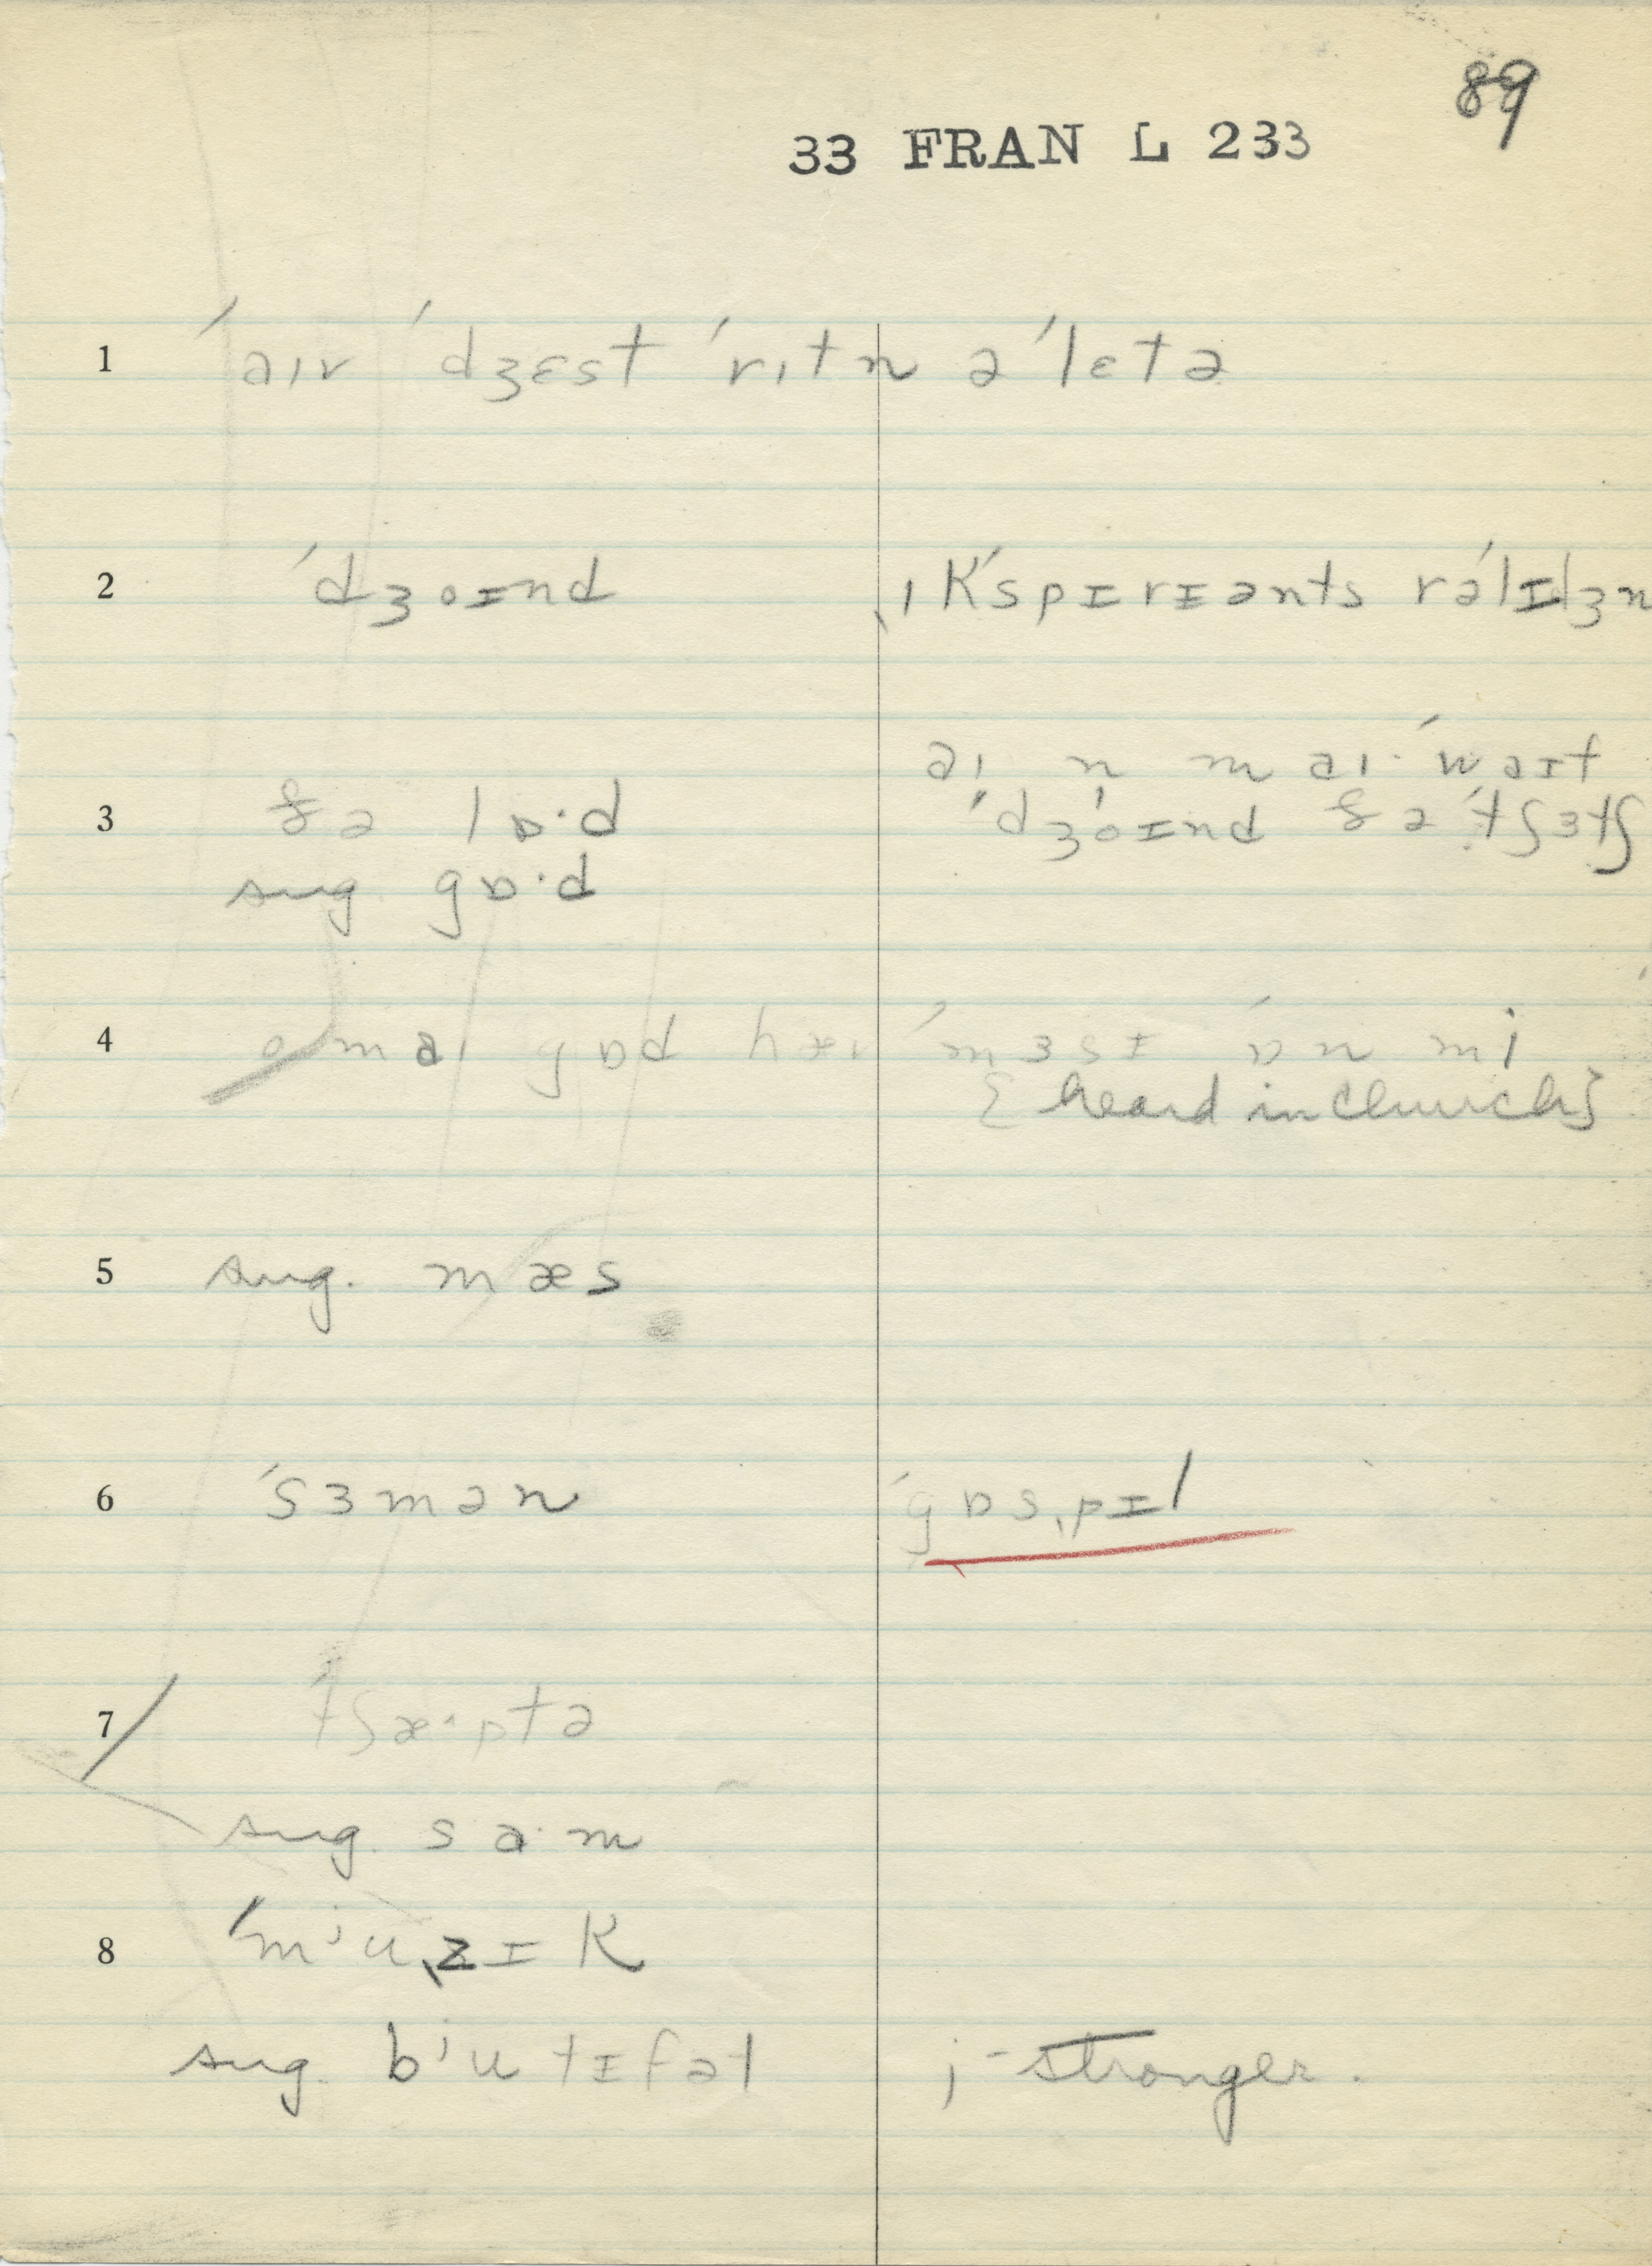 89
33 FRAN L 233
1 ˈaɪv ˈdʒɛst ˈrɪtn ə ˈlɛtə
2 ˈdʒoɪnd ˌɪkˈspɪrɪənts rəˈlɪdʒn
aɪ n maɪ ˈwaɪf
3 ðə lɒ·d ˈdʒoɪnd ðə ˈtʃɜtʃ
sug. gɒ·d
4 o maɪ gɒd hæv ˈmɜsɪ ˈɒn mi
{heard in church}
5 sug. mæs
6 ˈsɜmən ˈgɒsˌpɪl
7 ˈtʃæ·ptə
sug. sa·m
8 ˈmʲuˌzɪk
sug. bʲutɪfəl j-stronger.